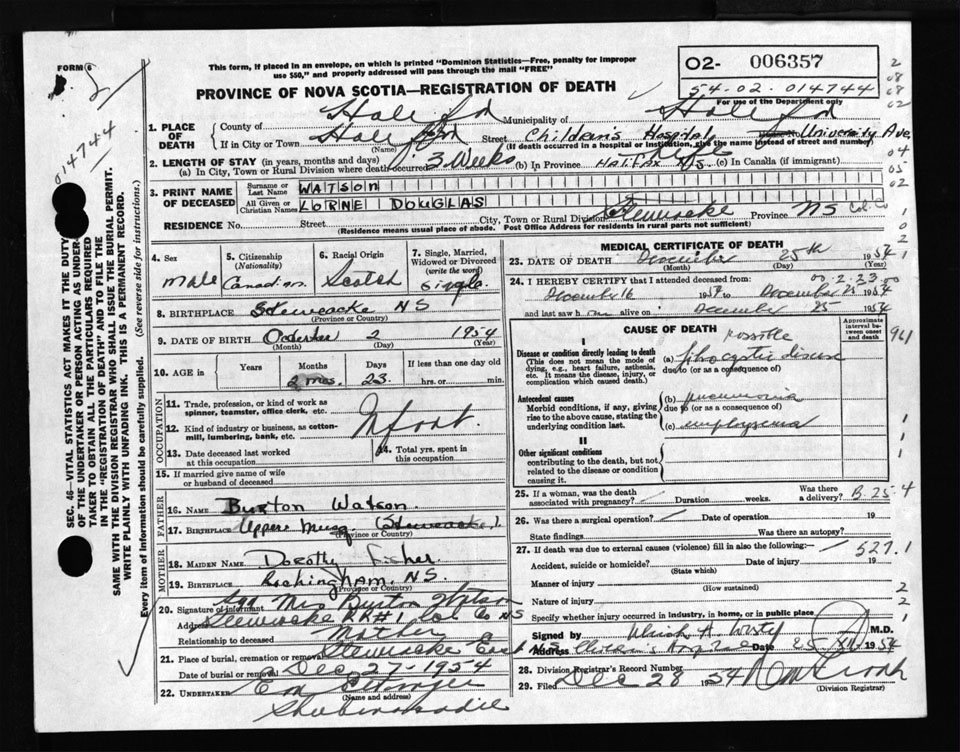 FORM 6
This form, if placed in an envelope, on which is printed "Dominion Statistics—Free, penalty for improper
use $50," and properly addressed will pass through the mail "FREE"
02- 006357
54-02.014744
For use of the Department only
PROVINCE OF NOVA SCOTIA—REGISTRATION OF DEATH
014744
1. PLACE OF DEATH
County of Halifax Municipality of Halifax
If in City or Town Halifax (Name) Street Children's Hospital University Ave
(If death occurred in a hospital or institution, give the name instead of street and number)
2. LENGTH OF STAY (in years, months and days)
(a) In City, Town or Rural Division where death occurred 3 Weeks (b) In Province HALIFAX NS (c) In Canada (if immigrant)
3. PRINT NAME OF DECEASED
Surname or Last Name WATSON
All Given or Christian Names LORNE DOUGLAS
RESIDENCE No. Street City, Town or Rural Division Stewiacke Province NS Col. Co
(Residence means usual place of abode. Post Office Address for residents in rural parts not sufficient)
4. Sex Male
5. Citizenship (Nationality) Canadian
6. Racial Origin Scotch
7. Single, Married, Widowed or Divorced (write the word) Single
8. BIRTHPLACE Stewiacke NS
(Province or Country)
9. DATE OF BIRTH October 2 1954
(Month) (Day) (Year)
10. AGE in Years Months Days If less than one day
2 mos. 23 hrs. or min.
OCCUPATION
11. Trade, profession, or kind of work as spinner, teamster, office clerk, etc. Infant
12. Kind of industry or business, as cotton-mill, lumbering, bank, etc.
13. Date deceased last worked at this occupation
14. Total yrs. spent in this occupation
15. If married give name of wife or husband of deceased
FATHER
16. NAME Burton Watson
17. BIRTHPLACE Upper Musq. (Stewiacke)
(Province or Country)
MOTHER
18. MAIDEN NAME Dorothy Fisher
19. BIRTHPLACE Rockingham. NS.
(Province or Country)
20. Signature of informant Sgd Mrs Burton Watson
Address Stewiacke RR#1 Col Co NS
Relationship to deceased Mother
21. Place of burial, cremation or removal Stewiacke East
Date of burial or removal Dec 27-1954
22. UNDERTAKER
(Name and address)
Shubenacadie
MEDICAL CERTIFICATE OF DEATH
23. DATE OF DEATH December 25th 1954
(Month) (Day) (Year)
00.2.23.00
24. I HEREBY CERTIFY that I attended deceased from
December 16 1954 to December 25 1954
and last saw h im alive on December 25 1954
CAUSE OF DEATH
Approximate interval between onset and death
I
Disease or condition directly leading to death
(This does not mean the mode of dying, e.g., heart failure, asthenia, etc. It means the disease, injury, or complication which caused death.)
Possible
(a) fibrocystic disease
due to (or as a consequence of)
Antecedent causes
Morbid conditions, if any, giving rise to the above cause, stating the underlying condition last.
(b) pneumonia
due to (or as a consequence of)
(c) emphysema
II
Other significant conditions
contributing to the death, but not related to the disease or condition causing it.
25. If a woman, was the death associated with pregnancy? Duration weeks. Was there a delivery? B-25-4
26. Was there a surgical operation? Date of operation 19
State findings Was there an autopsy?
27. If death was due to external causes (violence) fill in also the following:— 527.1
Accident, suicide or homicide? Date of injury 19
(State which)
Manner of injury
(How sustained)
Nature of injury
Specify whether injury occurred in industry, in home, or in public place
Signed by M.D.
Address Children's Hospital Date 25 XII 1954
28. Division Registrar's Record Number
29. Filed Dec 28 1954
(Division Registrar)
SEC. 46—VITAL STATISTICS ACT MAKES IT THE DUTY
OF THE UNDERTAKER OR PERSON ACTING AS UNDER-
TAKER TO OBTAIN ALL THE PARTICULARS REQUIRED
IN THE "REGISTRATION OF DEATH" AND TO FILE THE
SAME WITH THE DIVISION REGISTRAR WHO SHALL ISSUE THE BURIAL PERMIT.
WRITE PLAINLY WITH UNFADING INK. THIS IS A PERMANENT RECORD.
Every item of information should be carefully supplied. (See reverse side for instructions.)